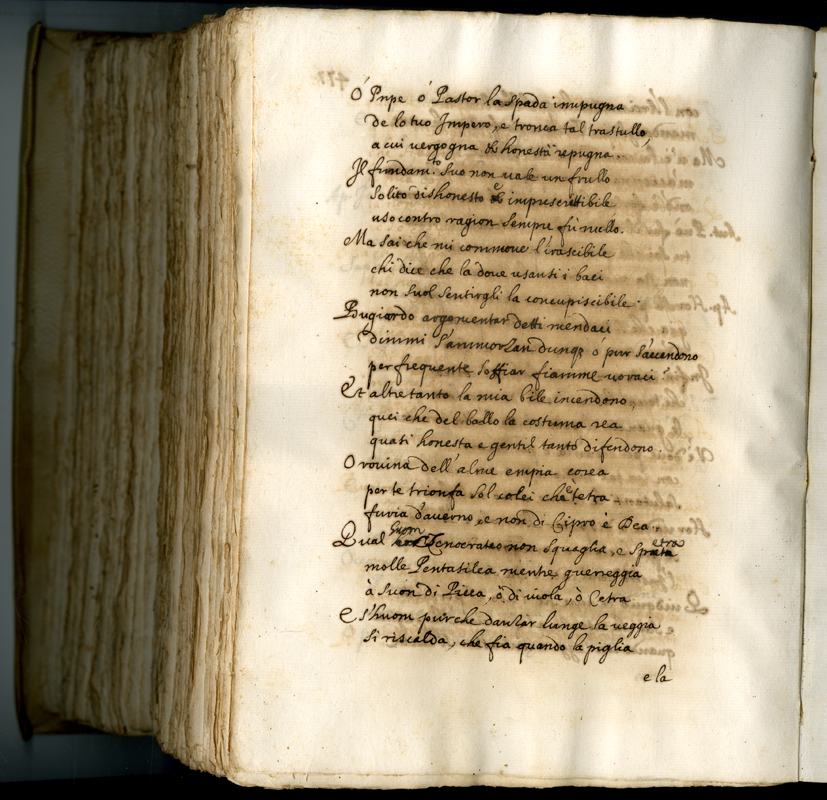 Ó Pnpe ó Pastor la spada inpugna
de lo tuo Impero, e tronca tal trastullo
a cui vergogna & honestà repugna.
Il fundamto suo non vale un frullo
solito dishonesto è imprescrittibile
uso contro ragion sempre fù nullo.
Ma sai che mi commove l'irascibile
chi dice che la dove usansi i baci
non suol sentirsli la concupiscibile
Bugiardo argomentar detti mendaci
dimmi s'ammorzan dunqz ó pur s'accendono
per frequente soffiar fiamme voraci
Et altretanto la mia bile incendono,
quei che del ballo la costuma rea
quasi honesta e gentil tanto difendono.
O rovina dell'alme empia corea
per te trionfa sol colei che è tetra
furia d'averno, e non di Cipro è Dea.
Qual huom Zenocrateo non squaglia, e spetra
molle Pentasilea mentre guerreggia
à suon di Piva, ò di viola, ò Cetra
E s'huom pur che danzar lunge la veggia
si riscalda, che fia quando la piglia
e la